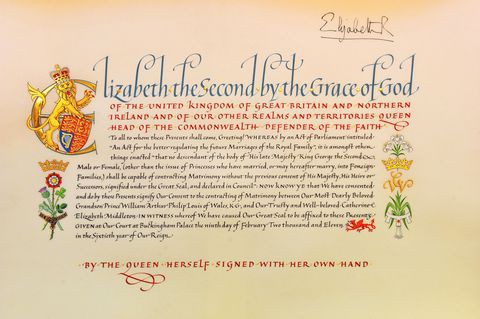 Elizabeth R
Elizabeth the Second by the Grace of God
OF THE UNITED KINGDOM OF GREAT BRITAIN AND NORTHERN
IRELAND AND OF OUR OTHER REALMS AND TERRITORIES QUEEN
HEAD OF THE COMMONWEALTH DEFENDER OF THE FAITH
To all to whom these Presents shall come, Greeting! WHEREAS by an Act of Parliament intituled
"An Act for the better regulating the future Marriages of the Royal Family", it is amongst other
things enacted "that no descendant of the body of His late Majesty King George the Second
Male or Female, (other than the issue of Princesses who have married, or may hereafter marry, into Foreign
Families,) shall be capable of contracting Matrimony without the previous consent of His Majesty, His Heirs or
Successors, signified under the Great Seal, and declared in Council". NOW KNOW YE that We have consented
and do by these Presents signify Our Consent to the contracting of Matrimony between Our Most Dearly Beloved
Grandson Prince William Arthur Philip Louis of Wales, K.G., and Our Trusty and Well-beloved Catherine
Elizabeth Middleton. IN WITNESS whereof We have caused Our Great Seal to be affixed to these Presents.
GIVEN at Our Court at Buckingham Palace the ninth day of February Two thousand and Eleven
in the Sixtieth year of Our Reign.
BY THE QUEEN HERSELF SIGNED WITH HER OWN HAND